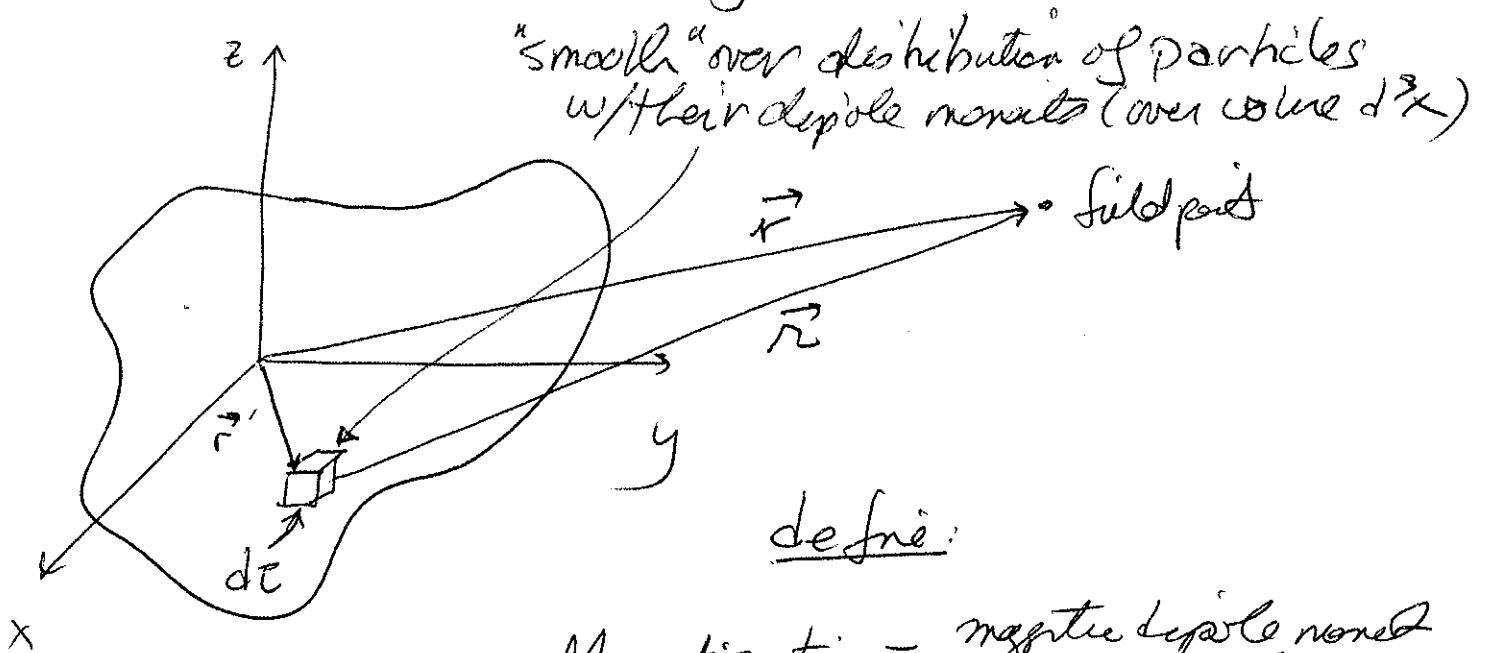 z
"smooth" over distribution of particles
w/their dipole moments (over volume d³x)
r⃗
field point
r⃗
r⃗ ′
y
dτ
define:
x
Magnetization = magnetic dipole moment